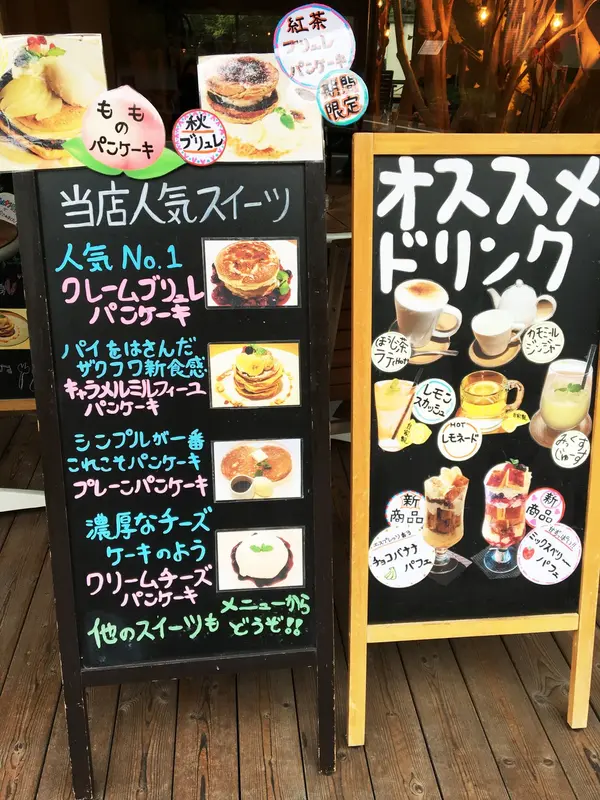 紅茶
ブリュレ
パンケーキ
期間
限定
もも
の
パンケーキ
秋
ブリュレ
当店人気スイーツ
人気 No.1
クレームブリュレ
パンケーキ
パイをはさんだ
ザクフワ新食感
キャラメルミルフィーユ
パンケーキ
シンプルが一番
これこそパンケーキ
プレーンパンケーキ
濃厚なチーズ
ケーキのよう
クリームチーズ
パンケーキ
他のスイーツも
メニューから
どうぞ!!
オススメ
ドリンク
ほうじ茶
ラテ(Hot)
カモミール
ジンジャー
レモン
スカッシュ
自家製
HOT
レモネード
自家製
みっくす
じゅーす
新
商品
チョコバナナ
パフェ
新
商品
ミックスベリー
パフェ